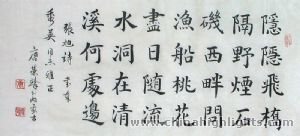 隱隱飛橋
隔野煙石
磯西畔問
漁船桃花
盡日随流
水洞在清
溪何處邊
張旭詩
www.chinahighlights.com